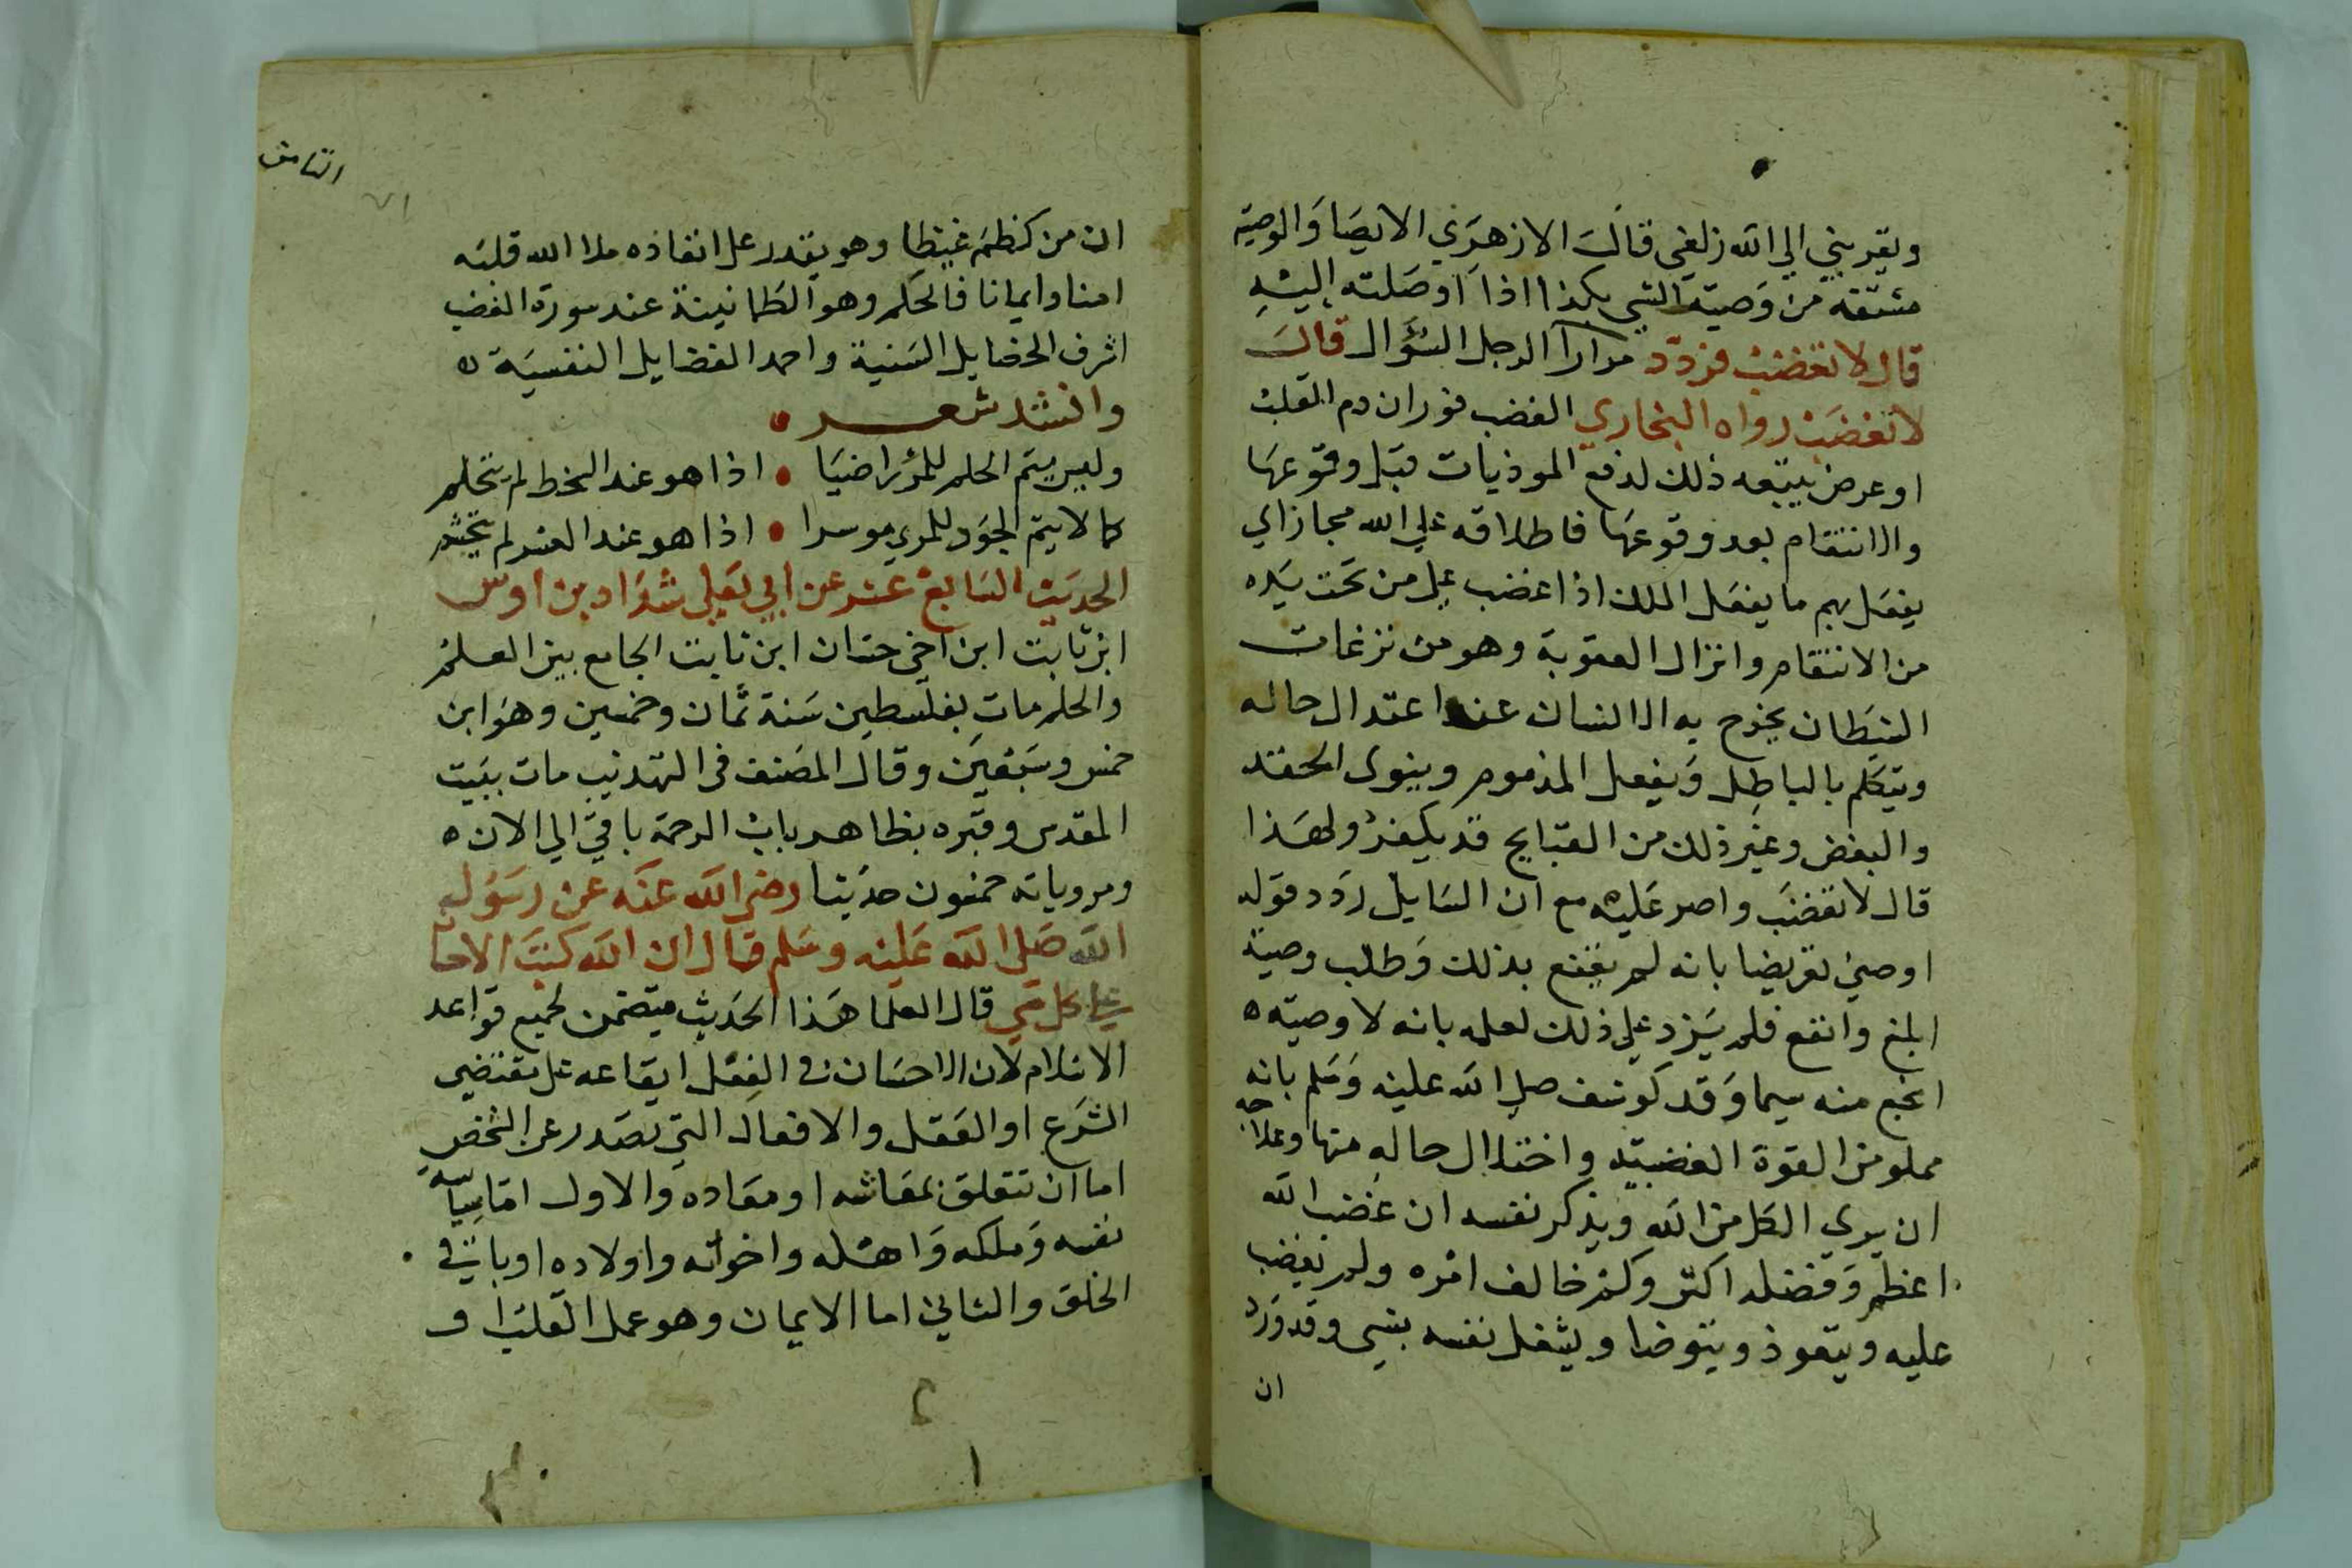 ويقربني الي الله زلفي قال الازهري الايصا والوصية
مشتقة من وصيت الشي بكذا اذا اوصلته اليه
قال لا تغضب فردد مرارا الرجل السؤال قال
لا تغضب رواه البخاري الغضب فوران دم القلب
او عرض يتبعه ذلك لدفع الموذيات قبل وقوعها
والانتقام بعد وقوعها فاطلاقه علي الله مجاز اي
يفعل بهم ما يفعل الملك اذا غضب علي من تحت يده
من الانتقام وانزال العقوبة وهو من نزغات
الشيطان يخرج به الانسان عن اعتدال حاله
ويتكلم بالباطل ويفعل المذموم وينوي الحقد
والبغض وغير ذلك من القبايح قد يكفر ولهذا
قال لا تغضب واصر عليه مع ان السايل ردد قوله
اوصني تعريضا بانه لم يقنع بذلك وطلب وصية
ابلغ وانفع فلم يزد علي ذلك لعلمه بانه لا وصية ه
انجع منه سيما وقد كوشف صلي الله عليه وسلم بانه
مملو من القوة الغضبية واختلال حاله منها وعلاجه
ان يري الكل من الله ويذكر نفسه ان غضب الله
اعظم وفضله اكثر وكم خالف امره ولم يغضب
عليه ويتعوذ ويتوضا ويشغل نفسه بشي وقد ورد
ان
الثامن
ان من كظم غيظا وهو يقدر علي انفاذه ملا الله قلبه
امنا وايمانا فالحلم وهو الطمانينة عند سورة الغضب
اشرف الخصايل السنية واحمد الفضايل النفسية ه
وانشد شعر
وليس يتم الحلم للمرء راضيا اذا هو عند السخط لم يتحلم
كما لا يتم الجود للمرء موسرا اذا هو عند العسر لم يتجشم
الحديث السابع عشر عن ابي يعلي شداد بن اوس
ابن ثابت ابن اخي حسان ابن ثابت الجامع بين العلم
والحلم مات بفلسطين سنة ثمان وخمسين وهو ابن
خمس وسبعين وقال المصنف في التهذيب مات ببيت
المقدس وقبره بظاهر باب الرحمة باقي الي الان ه
ومروياته خمسون حديثا رضي الله عنه عن رسول
الله صلي الله عليه وسلم قال ان الله كتب الاحسان
علي كل شي قال العلما هذا الحديث يتضمن لجميع قواعد
الاسلام لان الاحسان في الفعل ايقاعه علي مقتضي
الشرع او العقل والافعال التي تصدر عن الشخص
اما ان تتعلق بمعاشه او معاده والاول اما سياسة
نفسه وملكه واهله واخواته واولاده او باقي
الخلق والثاني اما الايمان وهو عمل القلب او